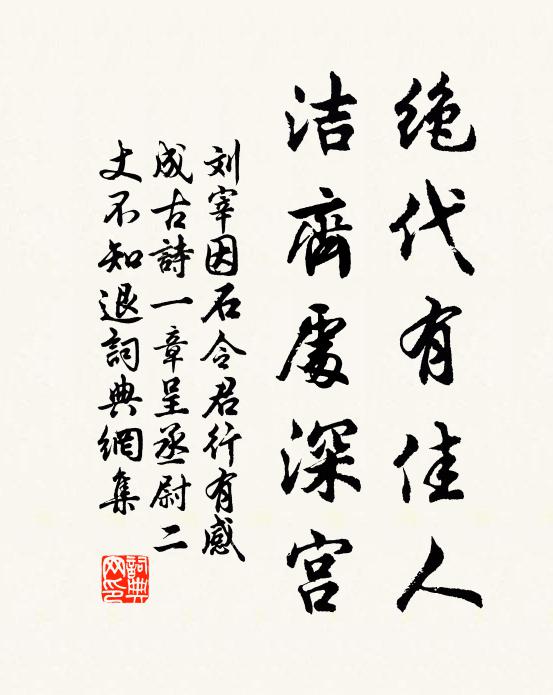 绝代有佳人
洁齊處深宫
刘宰因石令君行有感
成古詩一章呈丞尉二
丈不知退詞典網集
詞典网印